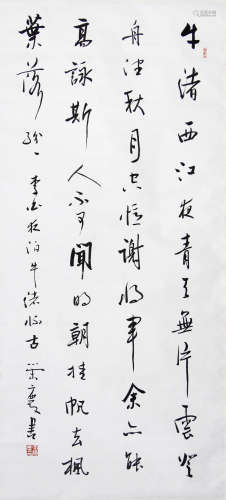 牛渚西江夜青天無片雲登
舟望秋月空憶謝將軍余亦能
高詠斯人不可聞明朝挂帆去楓
葉落紛々李白夜泊牛渚懷古書